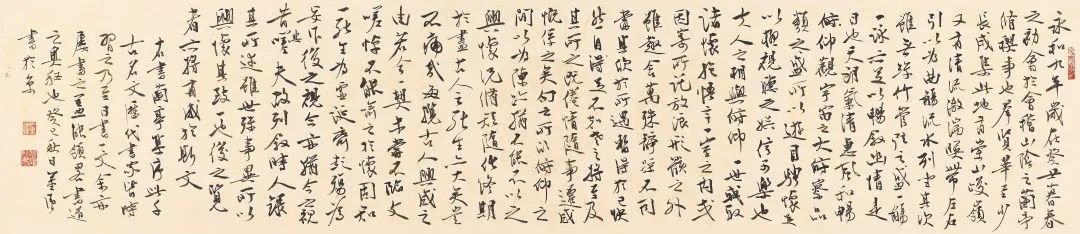 永和九年歲在癸丑暮春
之初會于會稽山陰之蘭亭
脩禊事也群賢畢至少
長咸集此地有崇山峻嶺
又有清流激湍映帶左右
引以為曲觴流水列坐其次
雖無絲竹管弦之盛一觴
一詠亦足以暢敘幽情是
日也天朗氣清惠風和暢
俯仰觀宇宙之大俯察品
類之盛所以遊目騁懷足
以極視聽之娛信可樂也
夫人之相與俯仰一世或取
諸懷抱悟言一室之內或
因寄所託放浪形骸之外
雖趣舍萬殊靜躁不同
當其欣於所遇暫得於己快
然自足不知老之將至及
其所之既倦情隨事遷感
慨係之矣向之所欣俯仰之
間以為陳跡猶不能不以之
興懷況脩短隨化終期
於盡古人云死生亦大矣豈
不痛哉每覽古人興感之
由若合一契未嘗不臨文
嗟悼不能喻之於懷固知
一死生為虛誕齊彭殤為
妄作後之視今亦猶今之視
昔悲夫故列敘時人錄
其所述雖世殊事異所以
興懷其致一也後之覽
者亦將有感於斯文
右書蘭亭集序此乃
古名文歷代書家皆時
習之乃至日書一文余亦
屢書之並欲領略書道
之奧秘也癸巳秋日
書於京